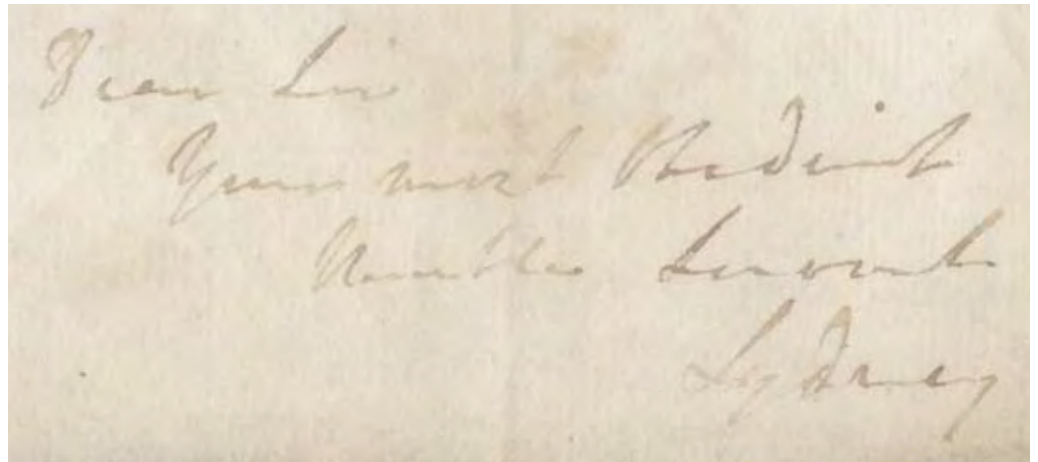 Dear Sir
Your most Obedient
Humble Servant
Sydney